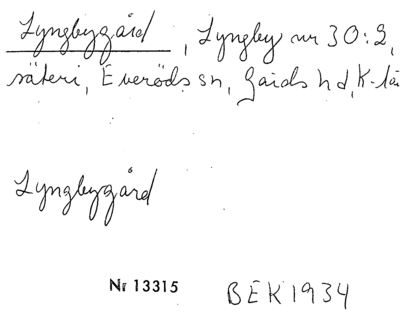 Lyngbygård, Lyngby nr 30:2,
säteri, Everöds sn, Gärds hd, K-lä
Lyngbygård
Nr 13315 BEK 1934